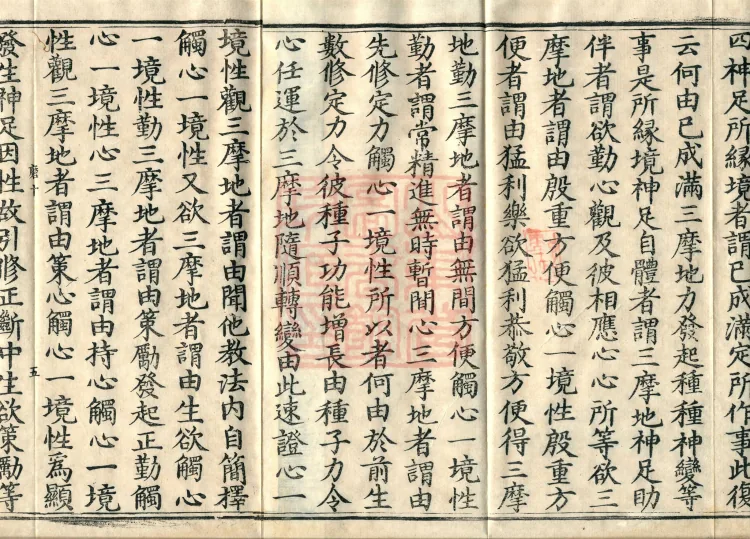 四神足所緣境者謂已成滿定所作事此復
云何由已成滿三摩地力發起種種神變等
事是所緣境神足自體者謂三摩地神足助
伴者謂欲勤心觀及彼相應心心所等欲三
摩地者謂由殷重方便觸心一境性殷重方
便者謂由猛利樂欲猛利恭敬方便得三摩
地勤三摩地者謂由無間方便觸心一境性
勤者謂常精進無時暫閒心三摩地者謂由
先修定力觸心一境性所以者何由於前生
數修定力令彼種子功能增長由種子力令
心任運於三摩地隨順轉變由此速證心一
境性觀三摩地者謂由聞他教法內自簡擇
觸心一境性又欲三摩地者謂由生欲觸心
一境性勤三摩地者謂由策勵發起正勤觸
心一境性心三摩地者謂由持心觸心一境
十 五
性觀三摩地者謂由策心觸心一境性爲顯
發生神足因性故引修正斷中生欲策勵等